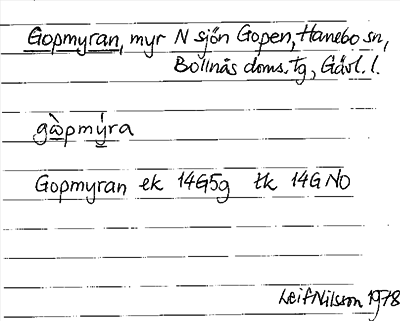 Gopmyran, myr N sjön Gopen, Hanebo sn,
Bollnäs doms. tg, Gävl. l.
gὼpmýra
Gopmyran ek 14G5g tk 14G NO
Leif Nilsson 1978